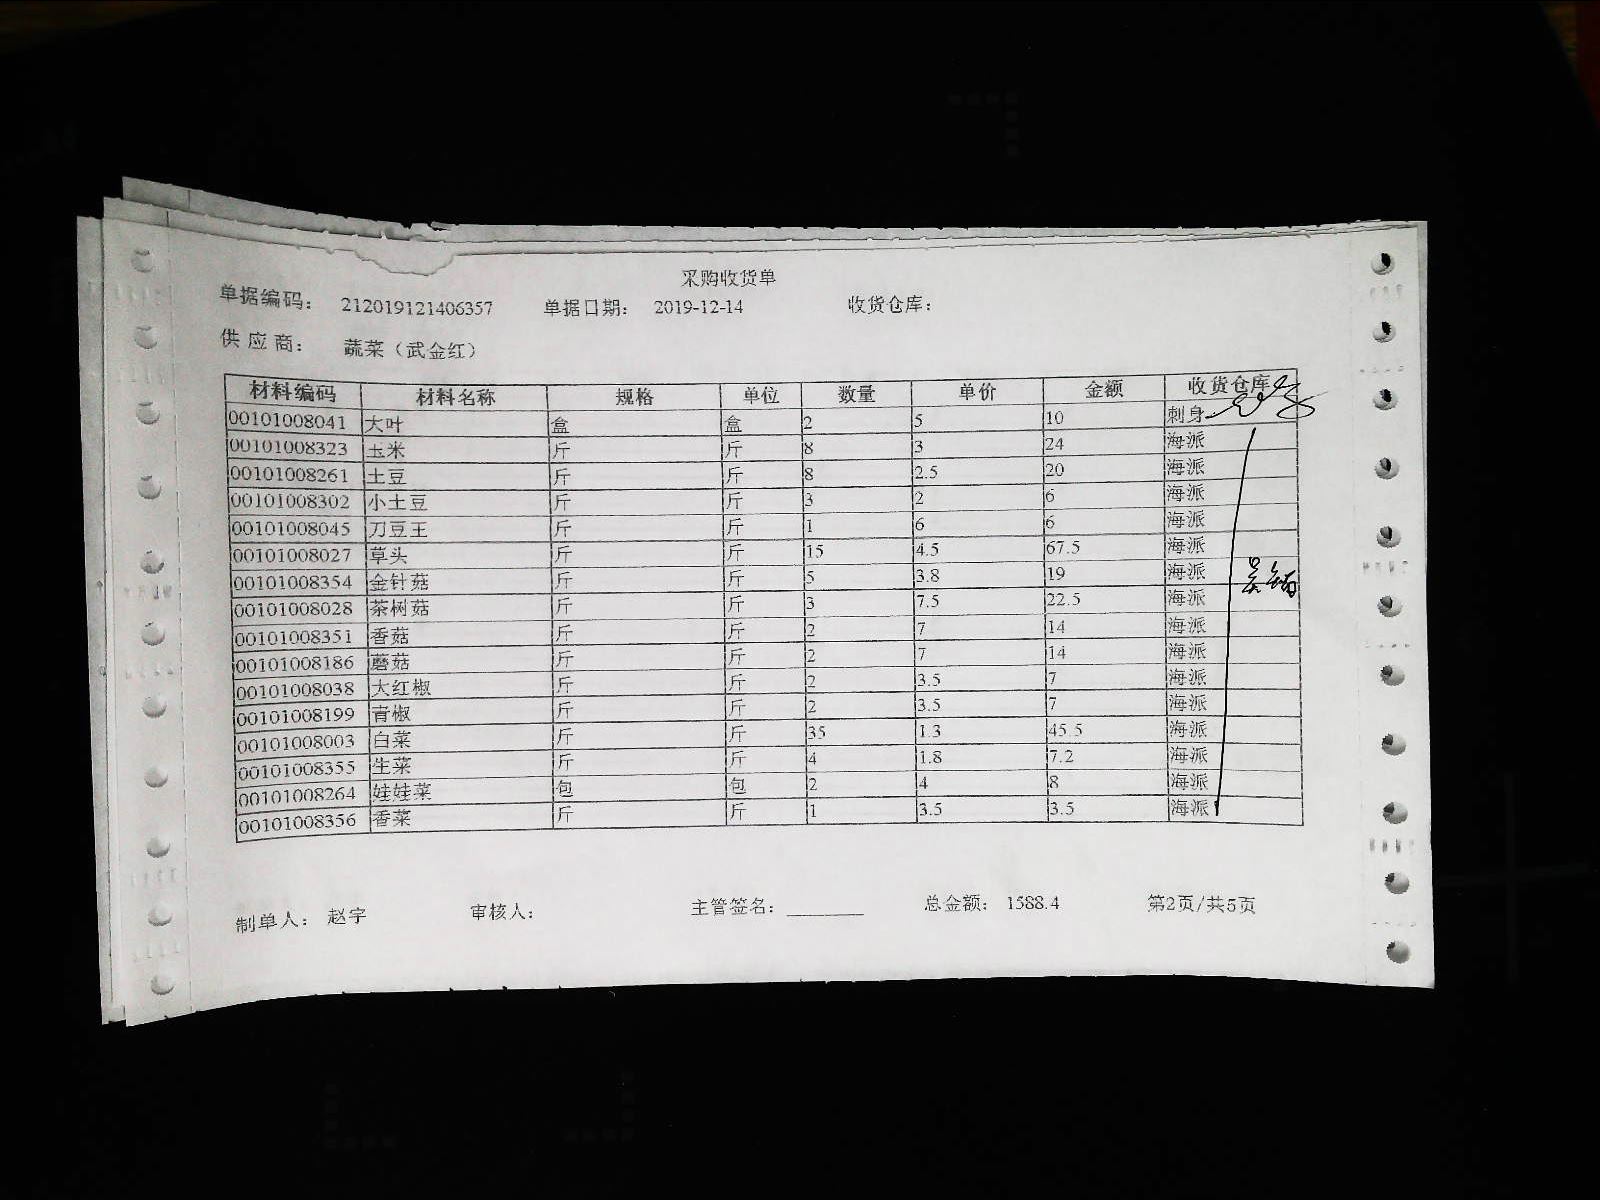 采购收货单
单据编码: 212019121406357 单据日期: 2019-12-14 收货仓库:
供应商: 蔬菜（武金红）
材料编码 材料名称 规格 单位 数量 单价 金额 收货仓库
00101008041 大叶 盒 盒 2 5 10 刺身
00101008323 玉米 斤 斤 8 3 24 海派
00101008261 土豆 斤 斤 8 2.5 20 海派
00101008302 小土豆 斤 斤 3 2 6 海派
00101008045 刀豆王 斤 斤 1 6 6 海派
00101008027 草头 斤 斤 15 4.5 67.5 海派
00101008354 金针菇 斤 斤 5 3.8 19 海派
00101008028 茶树菇 斤 斤 3 7.5 22.5 海派
00101008351 香菇 斤 斤 2 7 14 海派
00101008186 蘑菇 斤 斤 2 7 14 海派
00101008038 大红椒 斤 斤 2 3.5 7 海派
00101008199 青椒 斤 斤 2 3.5 7 海派
00101008003 白菜 斤 斤 35 1.3 45.5 海派
00101008355 生菜 斤 斤 4 1.8 7.2 海派
00101008264 娃娃菜 包 包 2 4 8 海派
00101008356 香菜 斤 斤 1 3.5 3.5 海派
制单人: 赵宇 审核人: 主管签名: 总金额: 1588.4 第2页/共5页